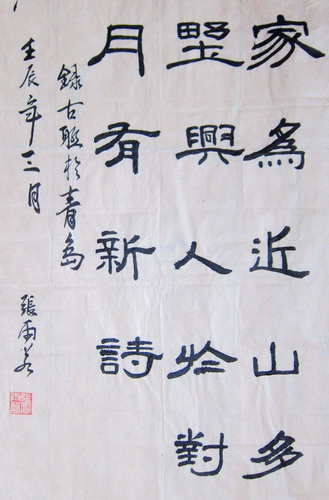 家為近山多
墅興人於對
月有新詩
錄古聯於青島
壬辰年三月
張雨